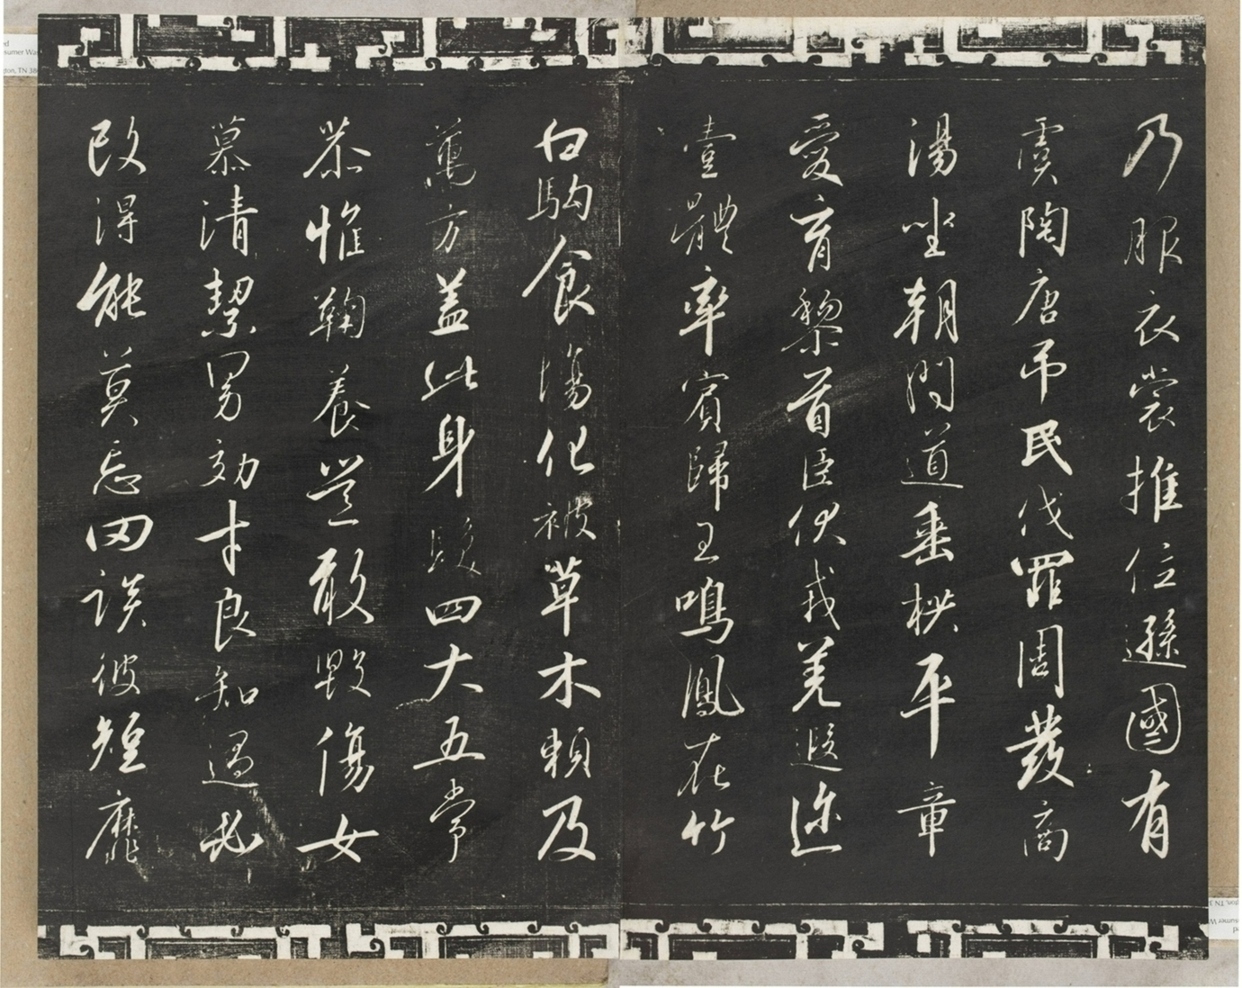 乃服衣裳推位遜國有
虞陶唐弔民伐罪周發商
湯坐朝問道垂拱平章
愛育黎首臣伏戎羌遐迩
壹體率賓歸王鳴鳳在竹
白駒食場化被草木賴及
萬方盖此身髮四大五常
恭惟鞠養豈敢毀傷女
慕清絜男効才良知過必
改得能莫忘罔談彼短靡